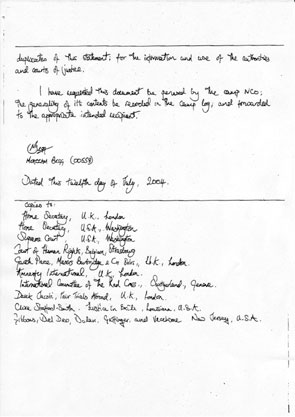 duplicates of this statement; for the information and use of the authorities
and courts of justice.
I have requested this document be perused by the camp NCO;
the generality of its contents be recorded in the camp log; and forwarded
to the appropriate intended recipient.
(00558)
Dated this Twelfth day of July, 2004.
copies to:
Home Secretary, U.K., London
Home Secretary, U.S.A., Washington
Supreme Court U.S.A., Washington
Court of Human Rights, Belgium, Strasbourg
Gareth Peirce, & Co Solrs, U.K., London.
Amnesty International, U.K., London.
International Committee of the Red Cross, Switzerland, Geneva.
Fair Trials Abroad, U.K., London.
Clive Stafford-Smith - Justice in Exile, Louisiana, U.S.A.
Gibbons, Del Deo, Dolan, Griffinger and Vecchione New Jersey, U.S.A.